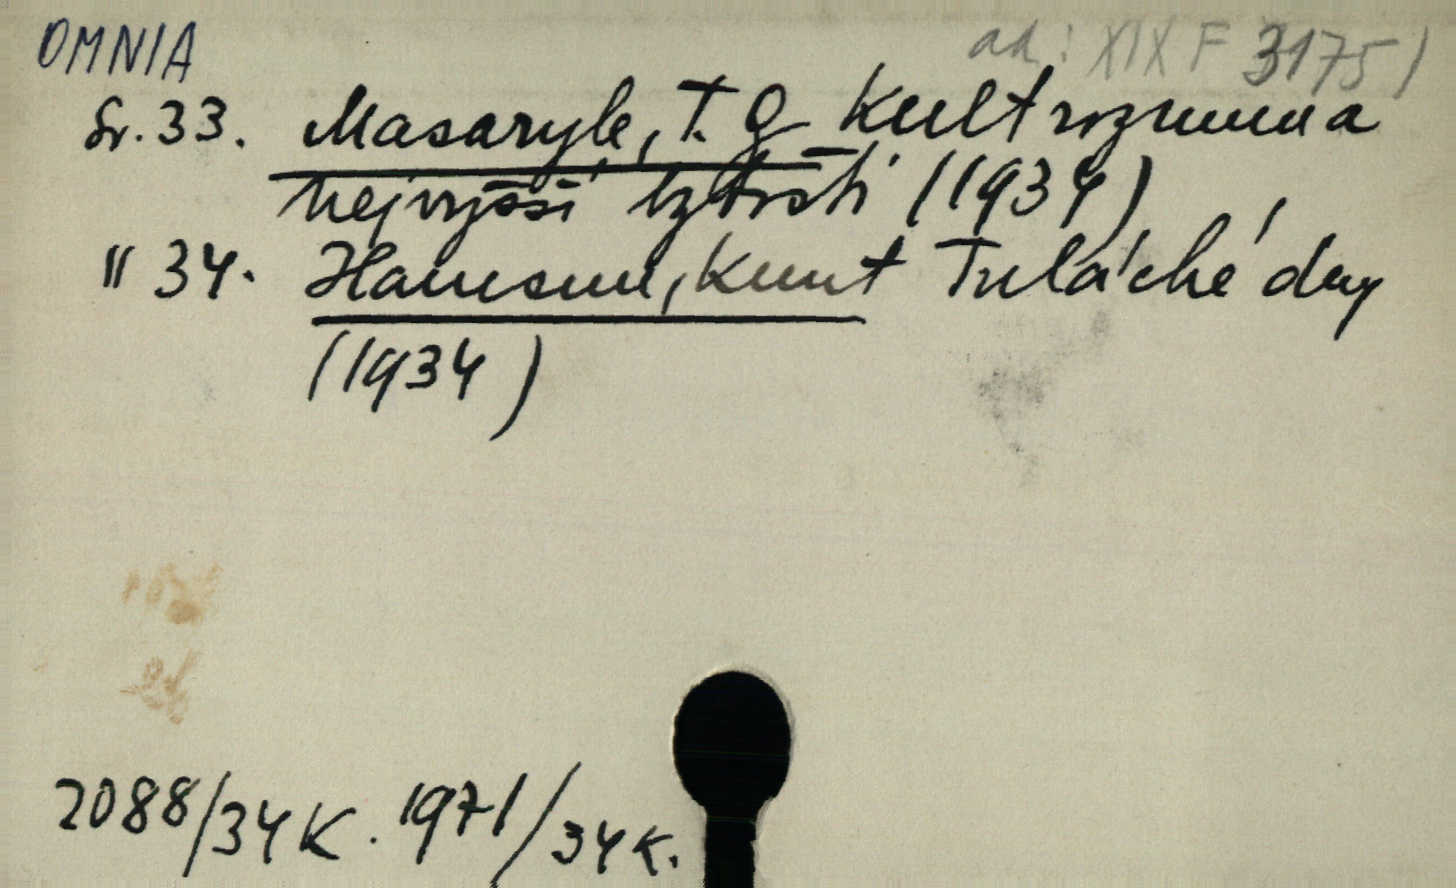 OMNIA
ad: XIX F 3175/
Sv. 33. Masaryk, T. G. Kult rozumu a
nejvyšší bytosti (1934)
" 34. Hamsun, Knut Tuláčké dny
(1934)
2088/34 K. 1971/34 K.